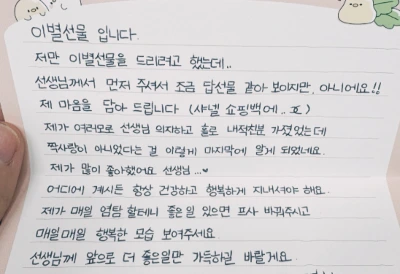 이별선물 입니다.
저만 이별선물을 드리려고 했는데..
선생님께서 먼저 주셔서 조금 답선물 같아 보이지만, 아니에요!!
제 마음을 담아 드립니다 (샤넬 쇼핑백에..ㅎ)
제가 여러모로 선생님 의지하고 홀로 내적친분 가졌었는데
짝사랑이 아니었다는 걸 이렇게 마지막에 알게 되었네요.
제가 많이 좋아했어요 선생님...♥
어디에 계시든 항상 건강하고 행복하게 지내셔야 해요.
제가 매일 염탐 할테니 좋은일 있으면 프사 바꿔주시고
매일매일 행복한 모습 보여주세요
선생님께 앞으로 더 좋은일만 가득하길 바랄게요.